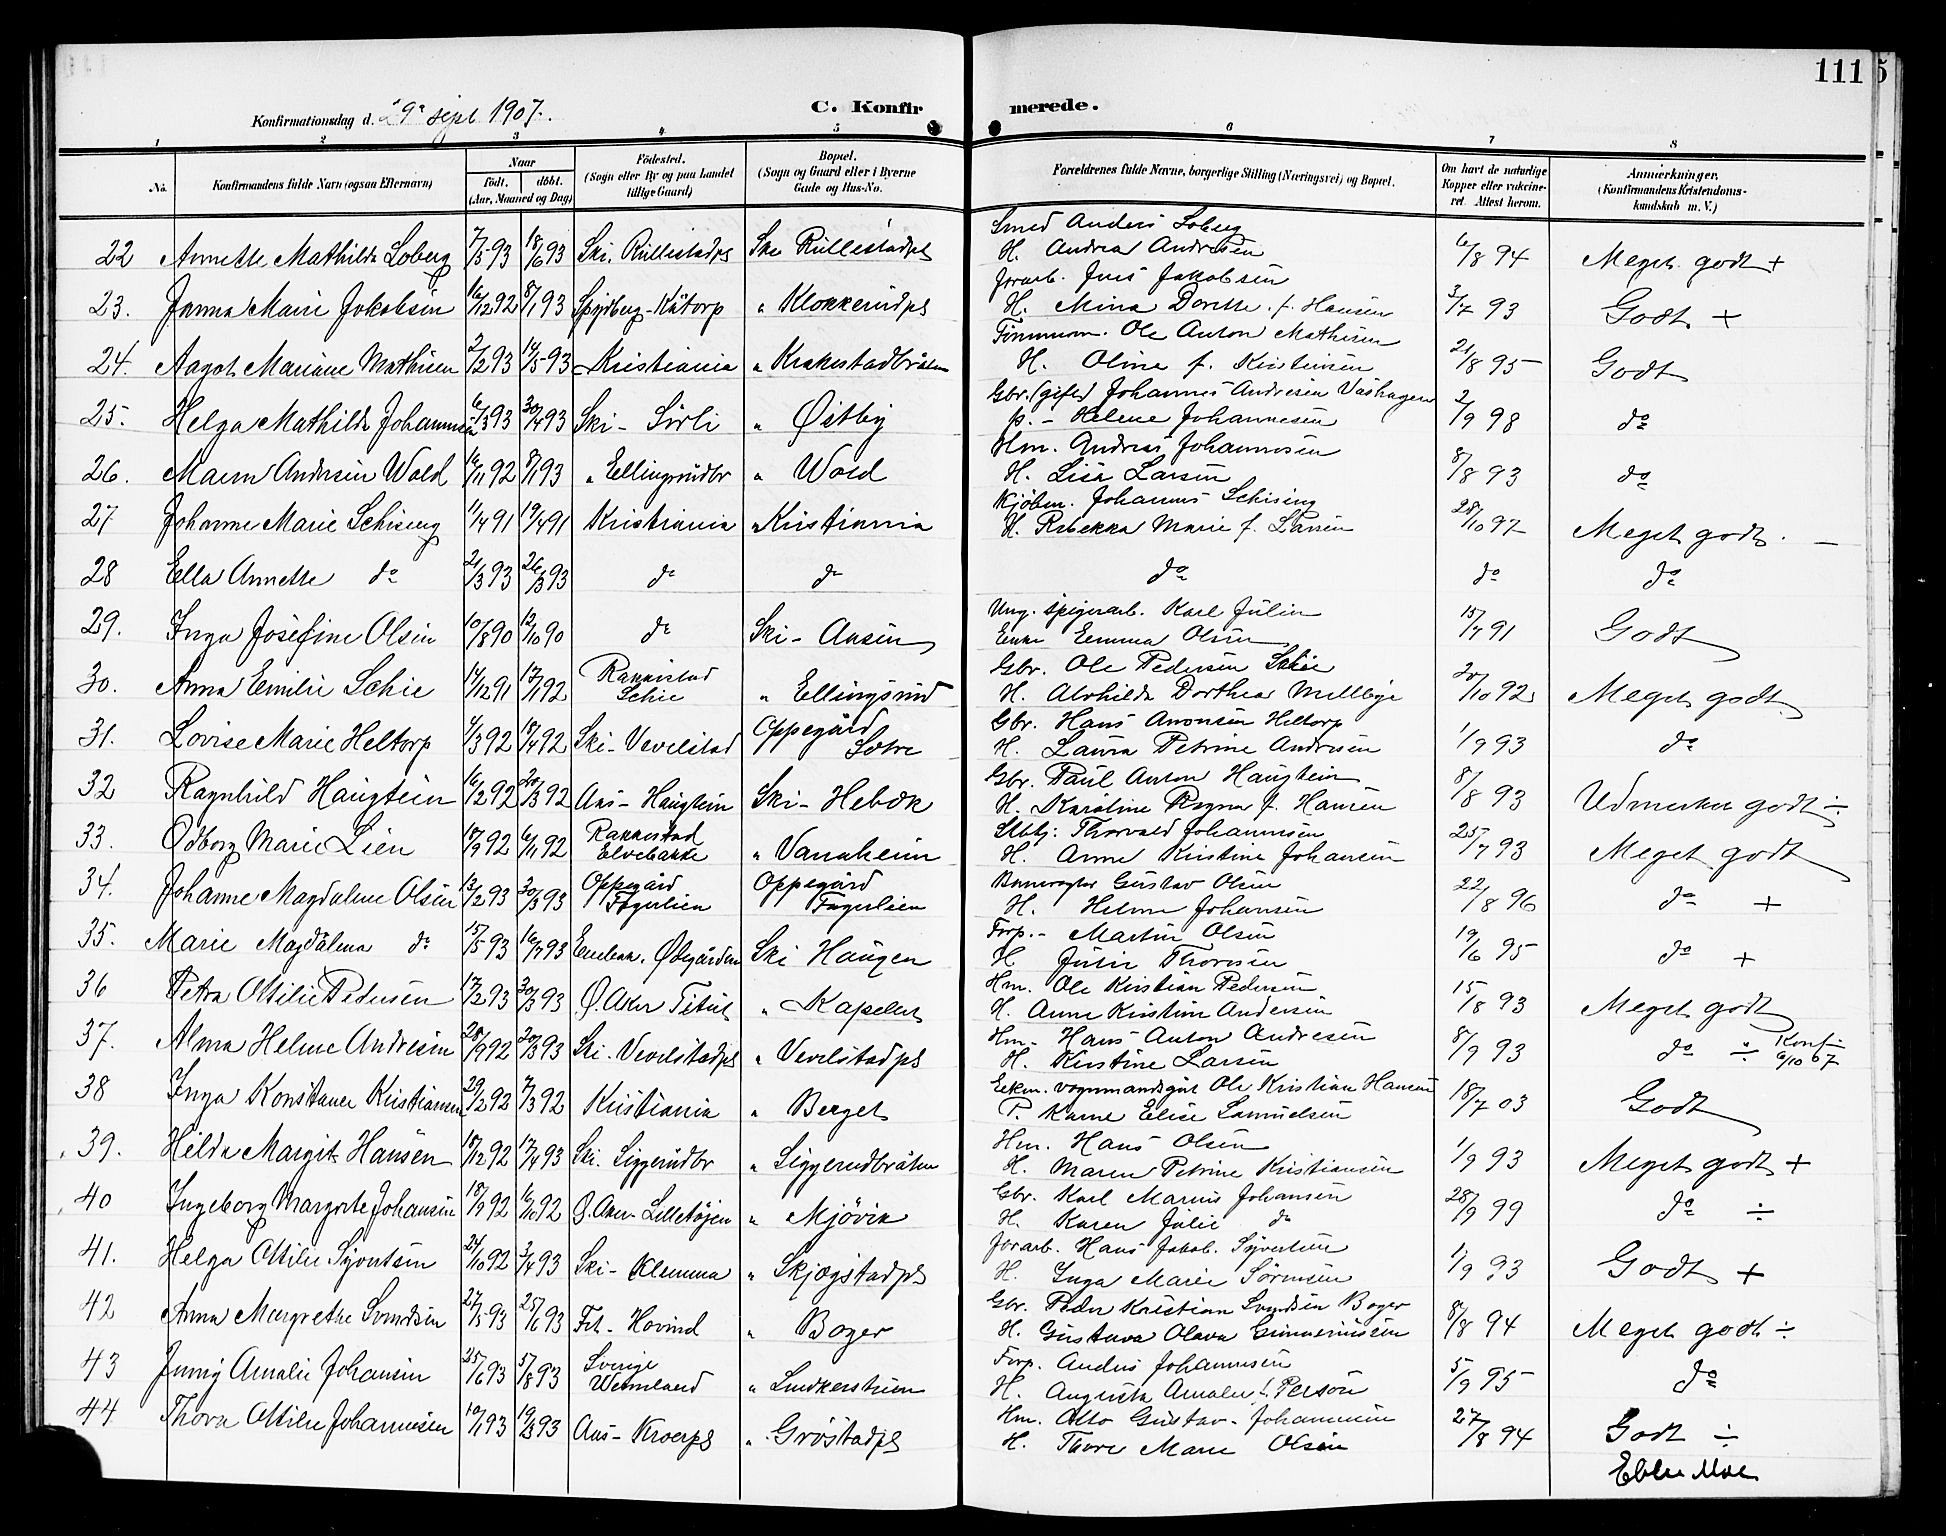 111
Konfirmationsdag d. 29 sept 1907.
C. Konfir merede.
1 2 3 4 5 6 7 8
No.
Konfirmandens fulde Navn (ogsaa Efternavn)
Naar
født. døbt.
(Aar, Maaned og Dag)
Fødested.
(Sogn eller By og paa Landet
tillige Gaard)
Bopæl.
(Sogn og Gaard eller i Byerne
Gade og Hus-No.
Forældrenes fulde Navne, borgerlige Stilling (Næringsvei) og Bopæl.
Om havt de naturlige
Kopper eller vakcine-
ret. Attest herom.
Anmerkninger.
(Konfirmandens Kristendoms-
kundskab m. V.)
Smed Anders Loberg
22 Annette Mathilde Loberg 7/5 93 18/6 93 Ski. Rullestadpl Ski Rullestadpl H. Andrea Andresen 6/8 94 Meget godt +
Jorarb. Jens Jakobsen
23. Janna Marie Jakobsen 16/12 92 8/1 93 Spydberg - Kåtorp " Klokkerudpl H. Mina Dorthe f. Hansen 3/7 93 Godt +
Tømmerm. Ole Anton Mathisen
24. Aagot Mariane Mathisen 2/2 93 14/5 93 Kristiania " Krakestadbråten H. Oline f. Kristensen 21/8 95 Godt
Gbr. (gift) Johannes Andresen Vashagen
25. Helga Mathilde Johannesen 6/3 93 30/4 93 Ski - Sørli " Østby p. - Helene Johannesen 2/9 98 do
Hm. Andreas Johannesen
26. Maren Andersen Wold 16/11 92 8/1 93 " Ellingsrudbr " Wold H. Lisa Larsen 8/8 93 do
Kjøbm. Johannes Schising
27 Johanne Marie Schising 11/4 91 19/4 91 Kristiania " Kristiania H. Rebekka Marie f. Larsen 28/10 97 Meget godt. -
28 Ella Annette do 21/3 93 26/3 93 do do do do do
Ung. spigerarb. Karl Julin
29. Inga Josefine Olsen 10/8 90 12/10 90 do Ski - Aasen Enke Emma Olsen 15/7 91 Godt
Gbr. Ole Pedersen Schie
30. Anna Emilie Schie 14/12 91 17/1 92 Rakkestad Schie " Ellingsrud H. Alvhilde Dorthea Mellbye 20/10 92 Meget godt
Gbr. Hans Anonsen Heltorp
31. Lovise Marie Heltorp 4/3 92 18/4 92 Ski - Vevelstad Oppegård Sætre H. Laura Petrine Andresen 1/9 93 do
Gbr. Paul Anton Haugtein
32 Ragnhild Haugtein 16/2 92 20/3 92 Aas - Haugtein Ski - Hebæk H. Karoline Ragna f. Hansen 8/8 93 Udmerket godt ÷
Thorvald Johannesen
33. Odborg Marie Lien 18/9 92 6/11 92 Rakkestad Elvebakke " Vanaheim H. Anne Kristine Johansen 25/7 93 Meget godt
Banevogter Gustav Olsen
34. Johanne Magdalene Olsen 13/2 93 30/3 93 Oppegård Fagerlien Oppegård Fagerlien H. Helene Johansen 22/8 96 do +
Forp. - Martin Olsen
35. Marie Magdalena do 15/5 93 16/7 93 Enebak. Ødegården Ski Haugen H. Julie Thoresen 19/6 95 do +
Hm. Ole Kristian Pedersen
36 Petra Otilie Pedersen 17/2 93 30/3 93 Ø. Aker Titut " Kapellet H. Anne Kristine Andersen 15/8 93 Meget godt
Hm - Hans Anton Andresen
37. Alma Helene Andresen 28/9 92 20/3 93 Ski - Vevelstadpl " Vevelstadpl H. Kirstine Larsen 8/9 93 do ÷ Konf. 6/10 07
Eekm. vognmandsgut Ole Kristian Hansen
38 Inga Konstance Kristiansen 29/2 92 7/3 92 Kristiania " Berget P. Karne Elise Samuelsen 18/7 03 Godt
Hm. Hans Olsen
39. Hilda Margit Hansen 18/12 92 17/4 93 Ski. Siggerudbr " Siggerudbråten H. Maren Petrine Kristiansen 1/9 93 Meget godt +
Gbr. Karl Marius Johansen
40 Ingeborg Margrete Johansen 18/9 92 16/10 92 Ø. Aker Lilletøjen " Mjøvik H. Karen Julie do 28/9 99 do ÷
Jorarb. Hans Jakob. Syvertsen
41. Helga Otilie Syvertsen 24/10 92 3/4 93 Ski - Klemma " Skjøgstadpl H. Inga Marie Sørensen 1/9 93 Godt +
Gbr. Peder Kristian Svendsen Boger
42 Anna Margrethe Svendsen 27/5 93 25/6 93 Fet - Hovind " Boger H. Gustava Olava Gunneriussen 8/8 94 Meget godt ÷
Forp. Anders Johannesen
43 Jenny Amalie Johansen 25/6 93 5/8 93 Sverige Wermland " H. Augusta Amalie f. Person 5/9 95 do
Hm. Otto Gustav. Johannesen
44 Thora Otilie Johannesen 10/1 93 19/3 93 Aas - Kroerpl " Grøstadpl H. Thore Marie Olsen 27/8 94 Godt ÷